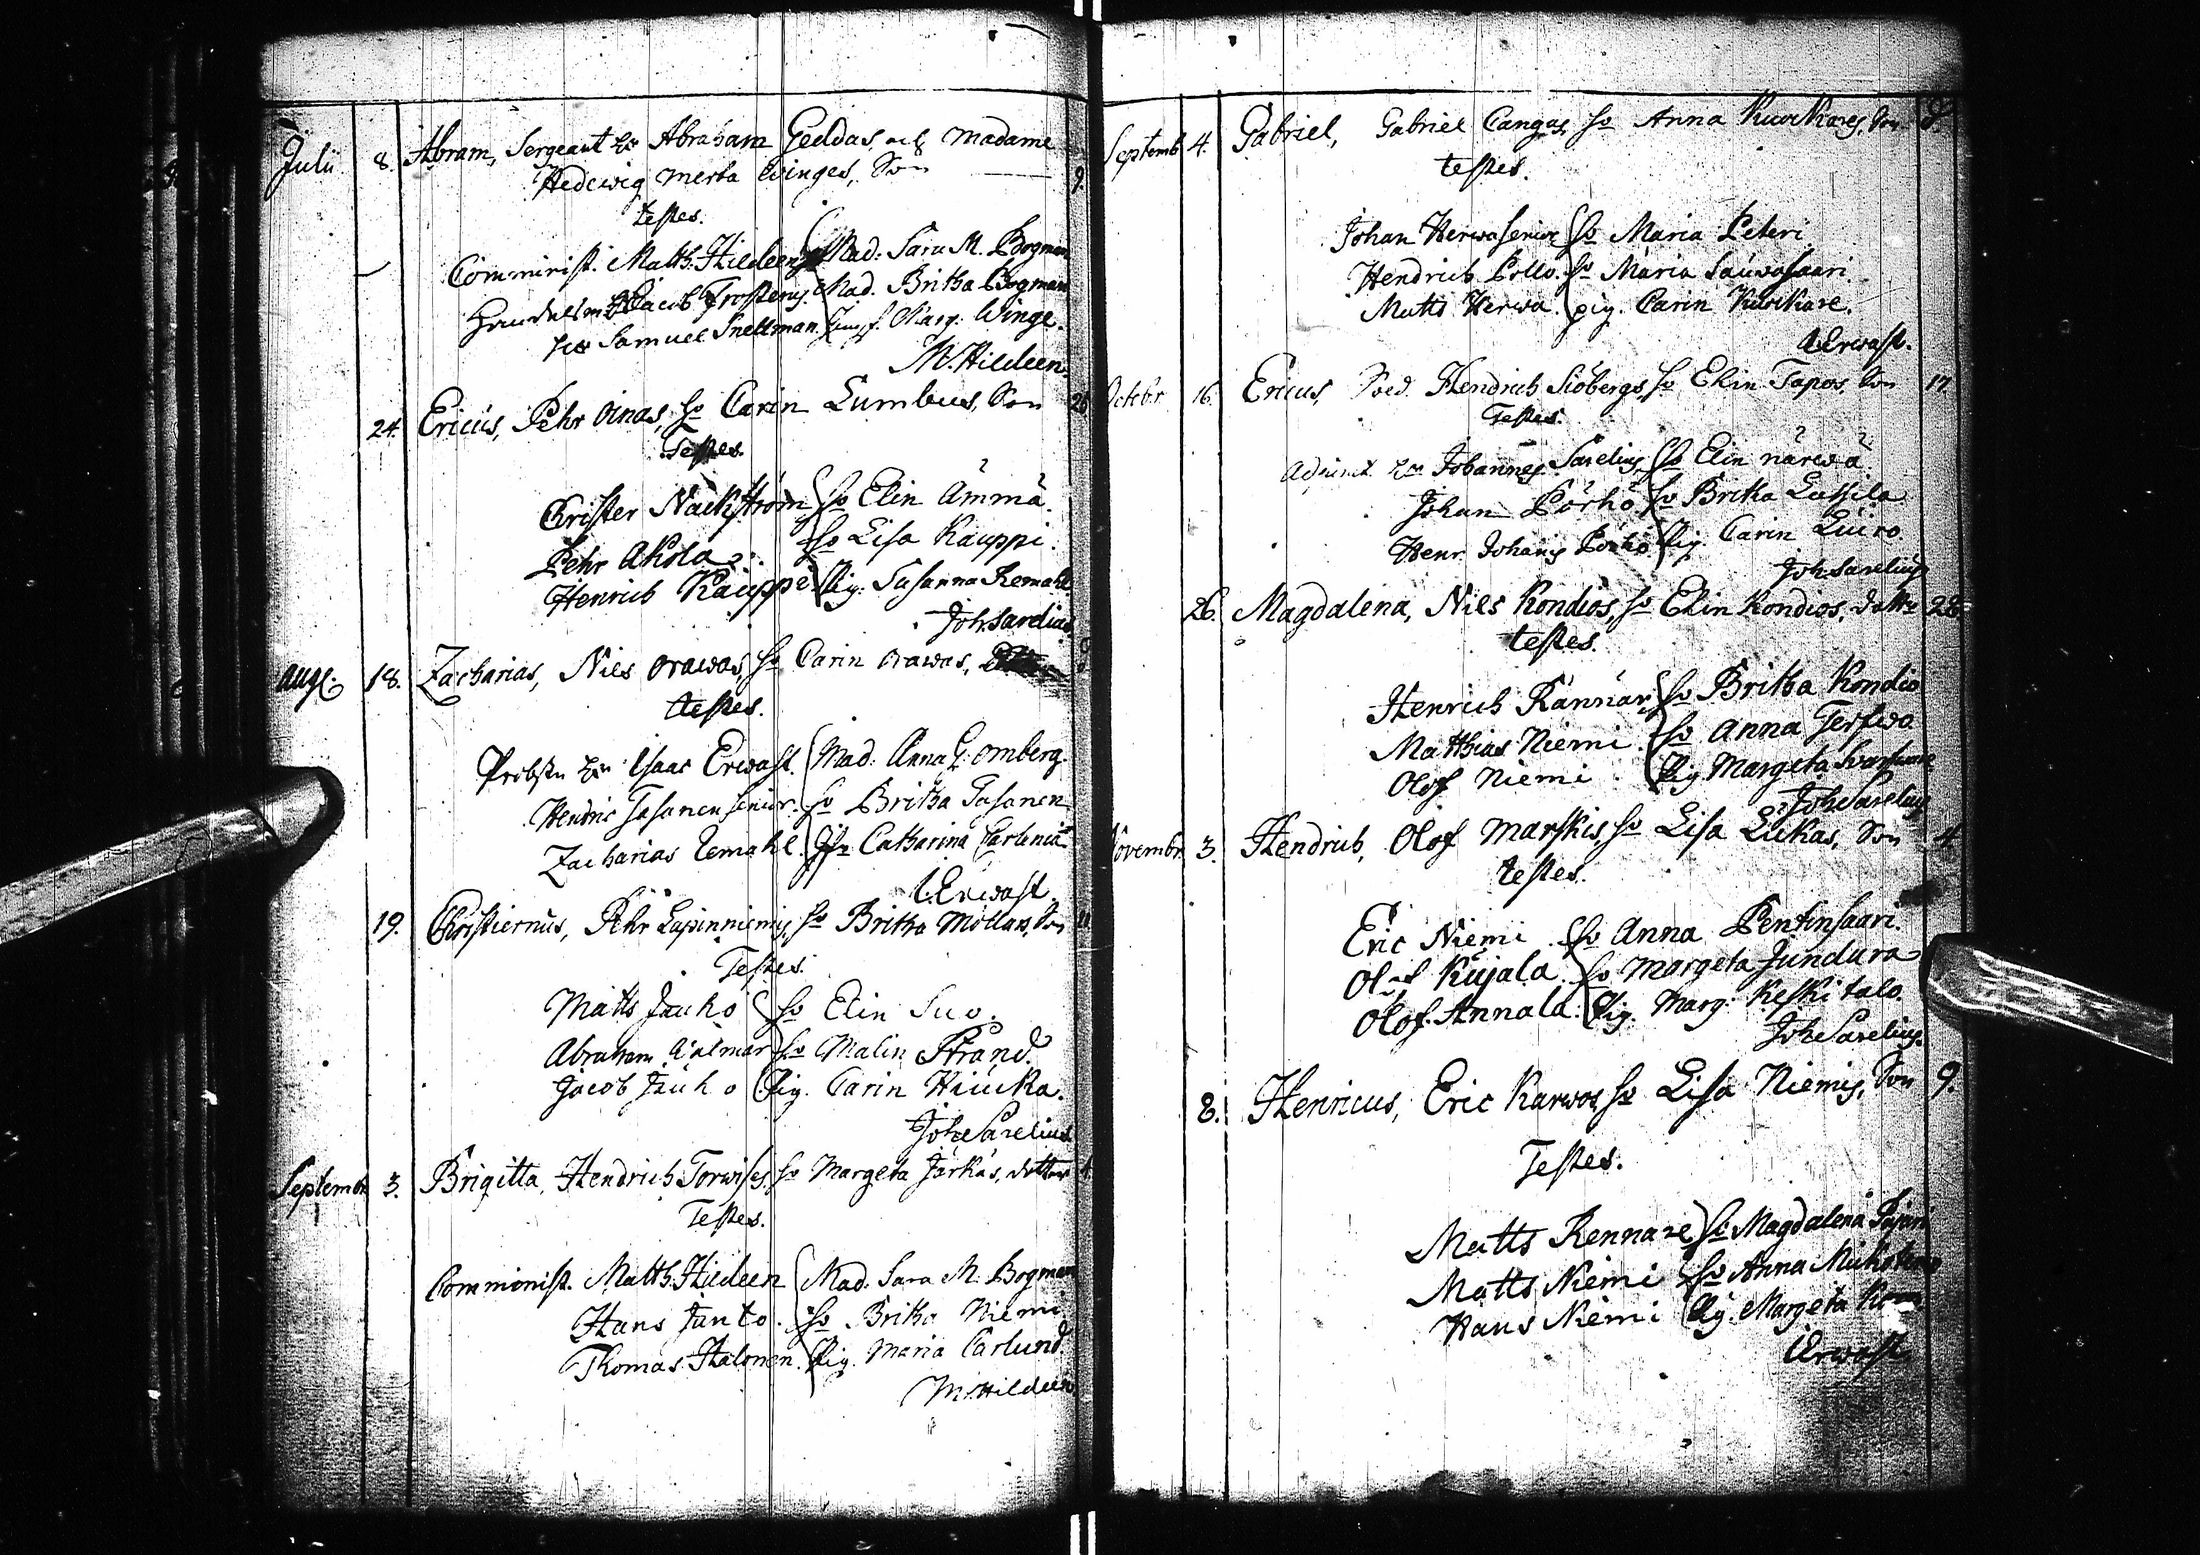 Julii 8. Abram, Sergeant Hr Abraham Geddas, och Madame
Hedewig Merta Winges, Son 9.
testes.
Comminist. Matth. Hildeen Mad: Sara M. Bogman
Jacob Frosterus. Mad. Britha Bogman
Hr Samuel Snellman. Jungf. Marg: Winge.
M. Hildeen.
24. Ericus, Pehr Oinas, ho Carin Lumbus, Son 26
Testes.
Christer Näckström ho Elin Ämmä.
Pehr Akola ho Lisa Kauppi.
Henrich Kauppi Pig. Susanna Remahl.
Joh. Sarelius
Aug. 18. Zacharias, Nils Orawas, ho Carin Orawas,
testes.
Probsten Hr Isaac Erwast. Mad: Anna E. Omberg.
Hendric Tasanen senior. ho Britha Tasanen
Zacharias Remahl. Catharina Carlenia
I. Erwast.
19. Christiernus, Pehr Lapinniemis, ho Britha Mollars, Son
Testes.
Matts Jauho ho Elin Suo.
Abraham Kalmar ho Malin Strand.
Jacob Jauho Pig. Carin Hiucka.
Joh. Sarelius
Septembr 3. Brigitta, Hendrich Torwises, ho Margeta Järkäs, dotter 4.
Testes.
Comminist. Matth. Hildeen Mad. Sara M. Bogman
Hans Junto. ho Britha Niemi
Thomas Halonen. Pig. Maria Carlund.
M. Hildeen
Septemb. 4. Gabriel, Gabriel Cangas, ho Anna Kuickares, Son
testes.
Johan Herwa senior ho Maria Peteri
Hendrich Pollo. ho Maria Sauwasaari
Matts Herwa. pig. Carin Kuickare.
I. Erwast.
Octobr. 16. Ericus, Hendrich Siöbergs, ho Elin Tapos, Son 17.
Testes.
Adjunct Hr Johannes Sarelius, ho Elin närwä
Johan Pörhö ho Britha Lassila
Henr. Johans Pörhö Pig. Carin Luiro
Joh. Sarelius
26. Magdalena, Nils Kondios, ho Elin Kondios, dotter 28
testes.
Henrich Rännär, ho Britha Kondio
Matthias Niemi ho Anna Terfwo
Olof Niemi. Pig Margeta
Joh. Sarelius
Novembr. 3. Hendrich, Olof Marskis, ho Lisa Lukas, Son 4.
testes.
Eric Niemi ho Anna Pentinsaari.
Olof Kujala ho Margeta Jundura
Olof Annala. Pig. Marg. Keskitalo.
Joh. Sarelius.
8. Henricus, Eric Karwos, ho Lisa Niemis, Son 9.
Testes.
Matts Rennare ho Magdalena
Matts Niemi ho Anna
Hans Niemi Pig. Margeta
I. Erwast.